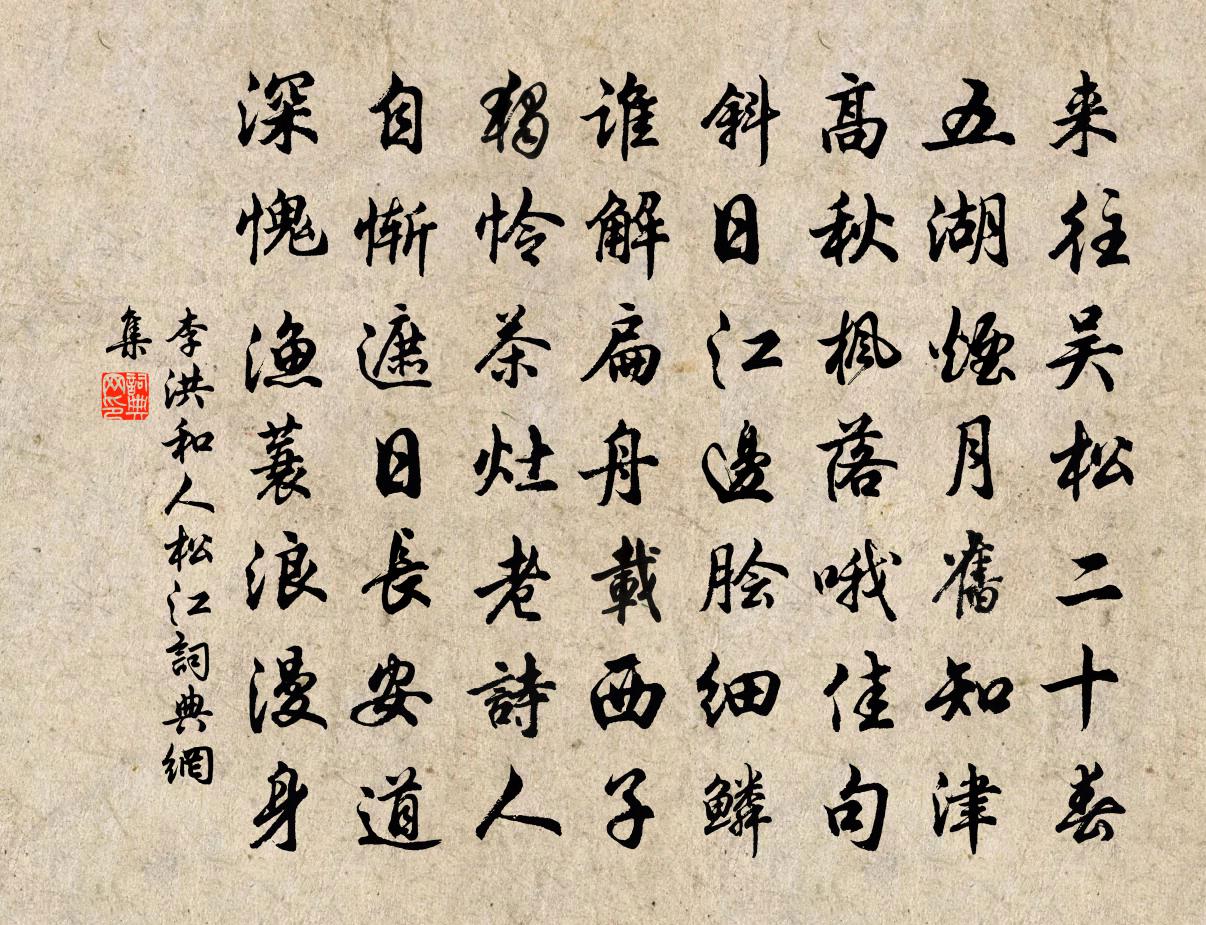 来往吴松二十春
五湖烟月舊知津
高秋楓落哦佳句
斜日江邊脍细鳞
谁解扁舟載西子
獨怜茶灶老詩人
自慚遮日長安道
深愧渔蓑浪漫身
李洪和人松江詞典網
集
詞典网印